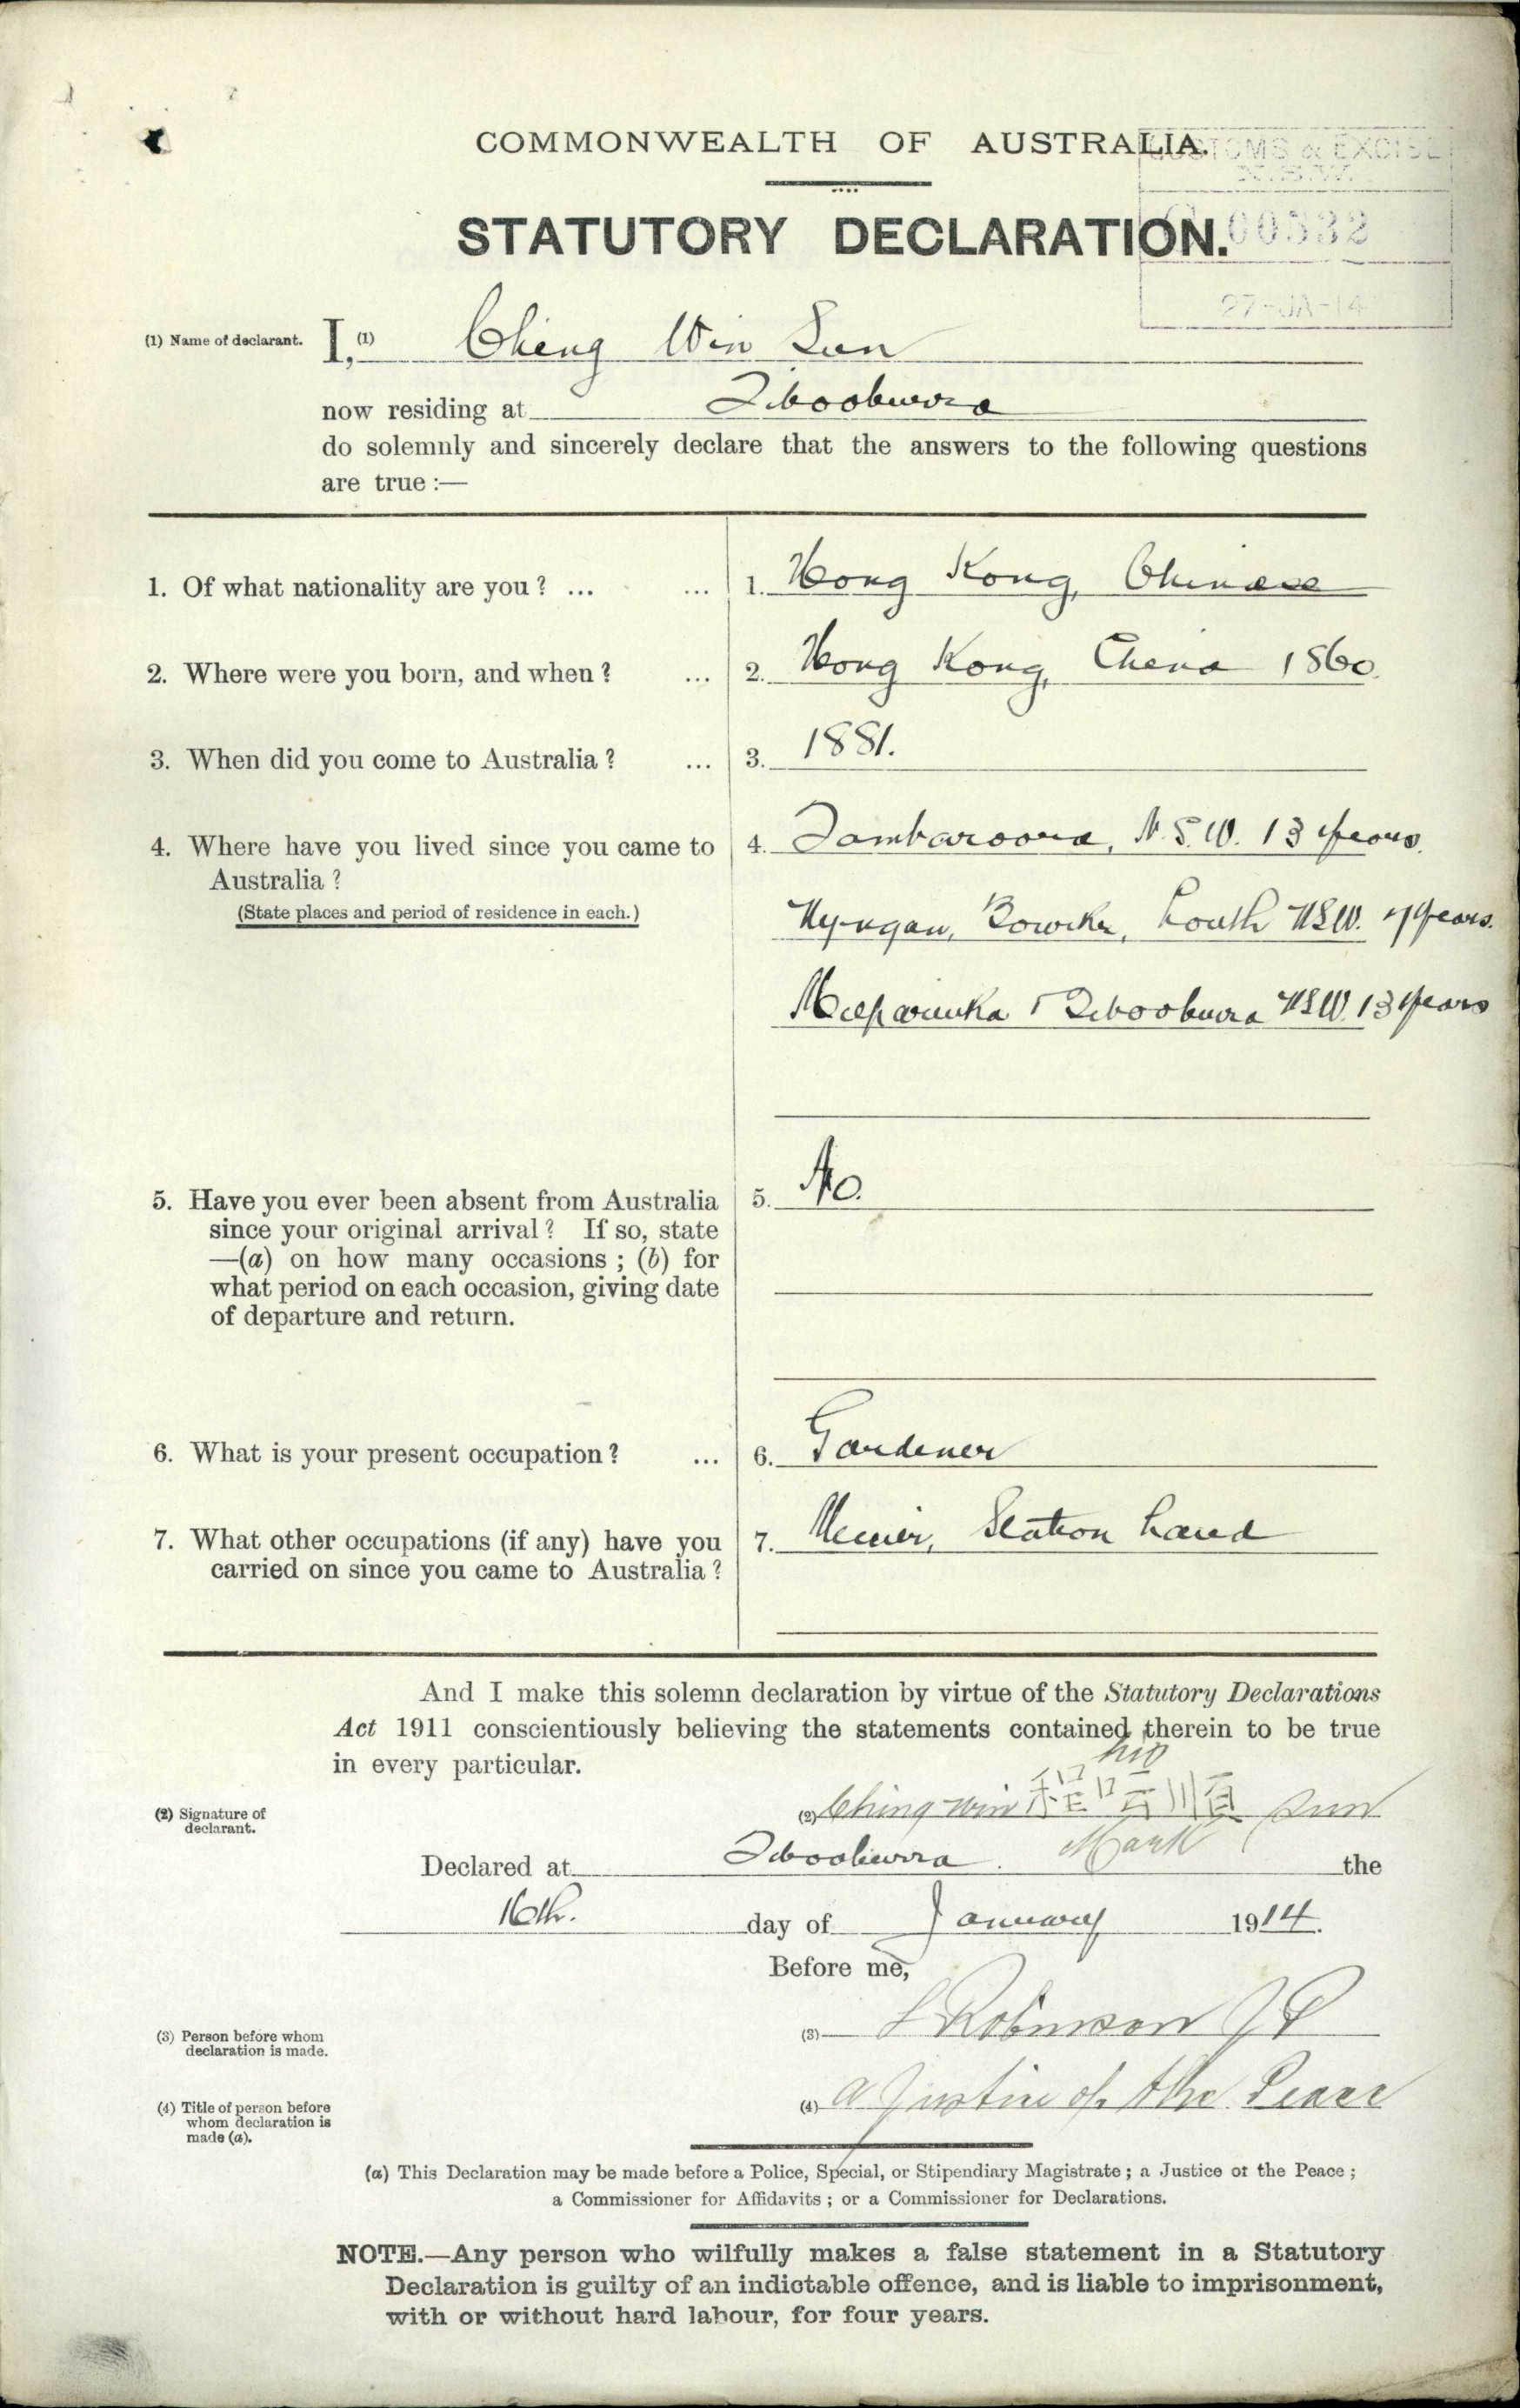 COMMONWEALTH OF AUSTRALIA.
CUSTOMS & EXCISE
N.S.W.
STATUTORY DECLARATION.
00532
27-JA-14
(1) Name of declarant. I,(1) Ching Win Sun
now residing at Tibooburra
do solemnly and sincerely declare that the answers to the following questions
are true :—
1. Of what nationality are you ? ... ... 1. Hong Kong, Chinese
2. Where were you born, and when ? ... 2. Hong Kong, China 1860.
3. When did you come to Australia ? ... 3. 1881.
4. Where have you lived since you came to 4. Tambaroora, N.S.W. 13 years.
Australia ?
(State places and period of residence in each.)
Nyngan, Bourke, Louth NSW. 7 years.
Milparinka & Tibooburra NSW. 13 years
5. Have you ever been absent from Australia 5. No.
since your original arrival ? If so, state
—(a) on how many occasions ; (b) for
what period on each occasion, giving date
of departure and return.
6. What is your present occupation ? ... 6. Gardener
7. What other occupations (if any) have you 7. Miner, Station hand
carried on since you came to Australia ?
And I make this solemn declaration by virtue of the Statutory Declarations
Act 1911 conscientiously believing the statements contained therein to be true
in every particular.
his
(2) Signature of declarant. (2) Ching win 程云順 Sun
Mark
Declared at Tibooburra. the
16th. day of January 1914.
Before me,
(3) Person before whom declaration is made. (3) Robinson JP
(4) Title of person before whom declaration is made (a). (4) a Justice of the Peace
(a) This Declaration may be made before a Police, Special, or Stipendiary Magistrate ; a Justice of the Peace ;
a Commissioner for Affidavits ; or a Commissioner for Declarations.
NOTE.—Any person who wilfully makes a false statement in a Statutory
Declaration is guilty of an indictable offence, and is liable to imprisonment,
with or without hard labour, for four years.